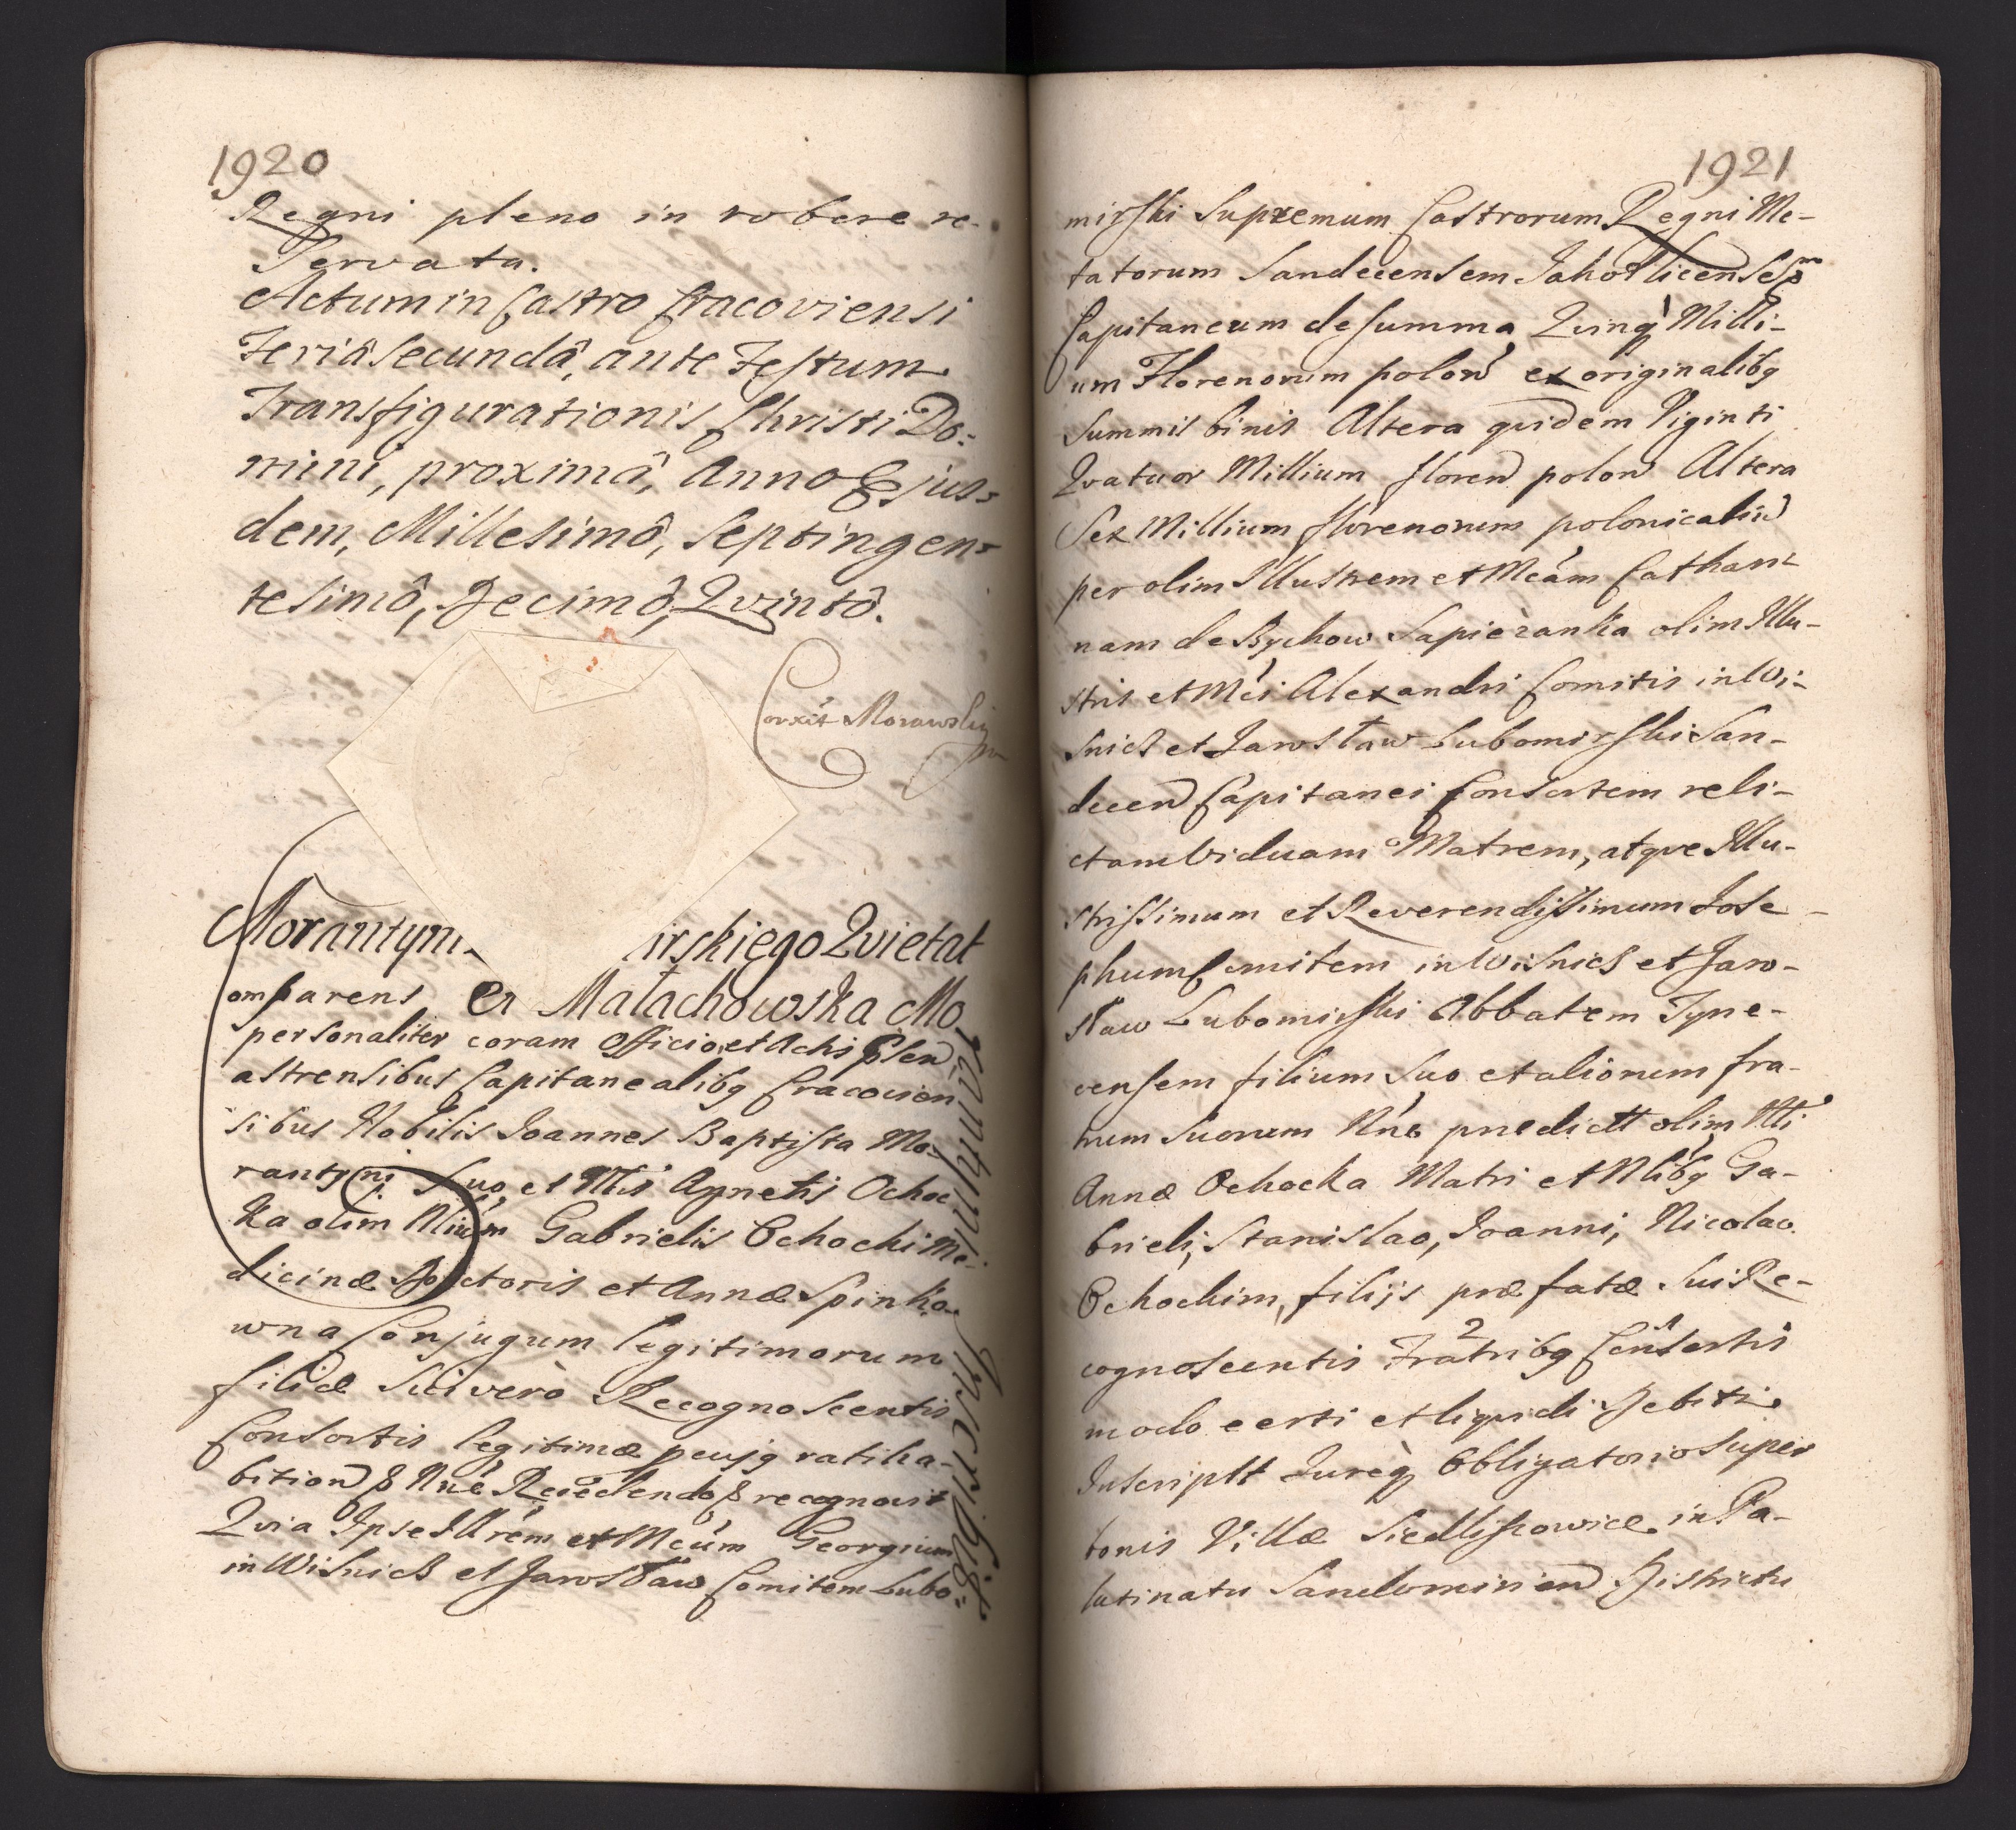 1920
Regni pleno in robore re-
servata.
Actum in Castro Cracoviensi
Feriâ Secundâ, ante Festum
Transfigurationis Christi Do=
mini, proximâ, Anno Ejus=
dem, Millesimô, Septingen=
tesimô, Decimô, Qvintô.
Correxit Morawsky
Morantyni irskiego Qvietat
et Małachowska Mo
rantyni Inscribit
Comparens
personaliter coram Officio et Actis pñlen
astrensibus Capitanealibq Cracovien
sibus Nobilis Joannes Baptista Mo=
rantyni Suo, et Nlis Agnetis Ochoc
ka olim Nlium Gabrielis Ochocki Me-
dicinæ Doctoris et Annæ Spinko
wna Conjugum legitimorum
filiæ Sui verò Recognoscentis
Consortis legitimæ peujq ratiha-
bition
Qvia Ipse Illrem et Mcum Georgium
in Wisnicz et Jarosław Comitem Lubo=
1921
mirski Supremum Castrorum Regni Me-
tatorum Sandecensem
Capitaneum de Summa Qvinq Milli-
um Florenorum polon ex originalibq
Summis binis Altera qvidem Viginti
Qvatuor Millium floren polon Altera
Sex Millium florenorum polonicaliu
per olim Illustrem et Mcam Cathari
nam de Bychow Sapieżanka olim Illu-
stris et Mci Alexandri Comitis in Wi-
snicz et Jarosław Lubomirski San-
decen Capitanei Consortem reli-
ctam Viduam Matrem, atqve Illu-
strissimum et Reverendissimum Jose-
phum Comitem in Wisnicz et Jaro-
sław Lubomirski Abbatem Tyne-
censem filium Suo et aliorum fra-
trum Suorum Nne prædictt olim Nli
Annæ Ochocka Matri et Nlibq Ga-
brieli, Stanislao, Joanni, Nicolao
Ochockim, filijs præfatæ Sui Re-
cognoscentis Fratribq Consortis
modo certi et liqvidi Debiti
Inscriptt Jureq Obligatorio Super
bonis Villæ Siedliszowice in Pa-
latinatu Sandomirien Districtu